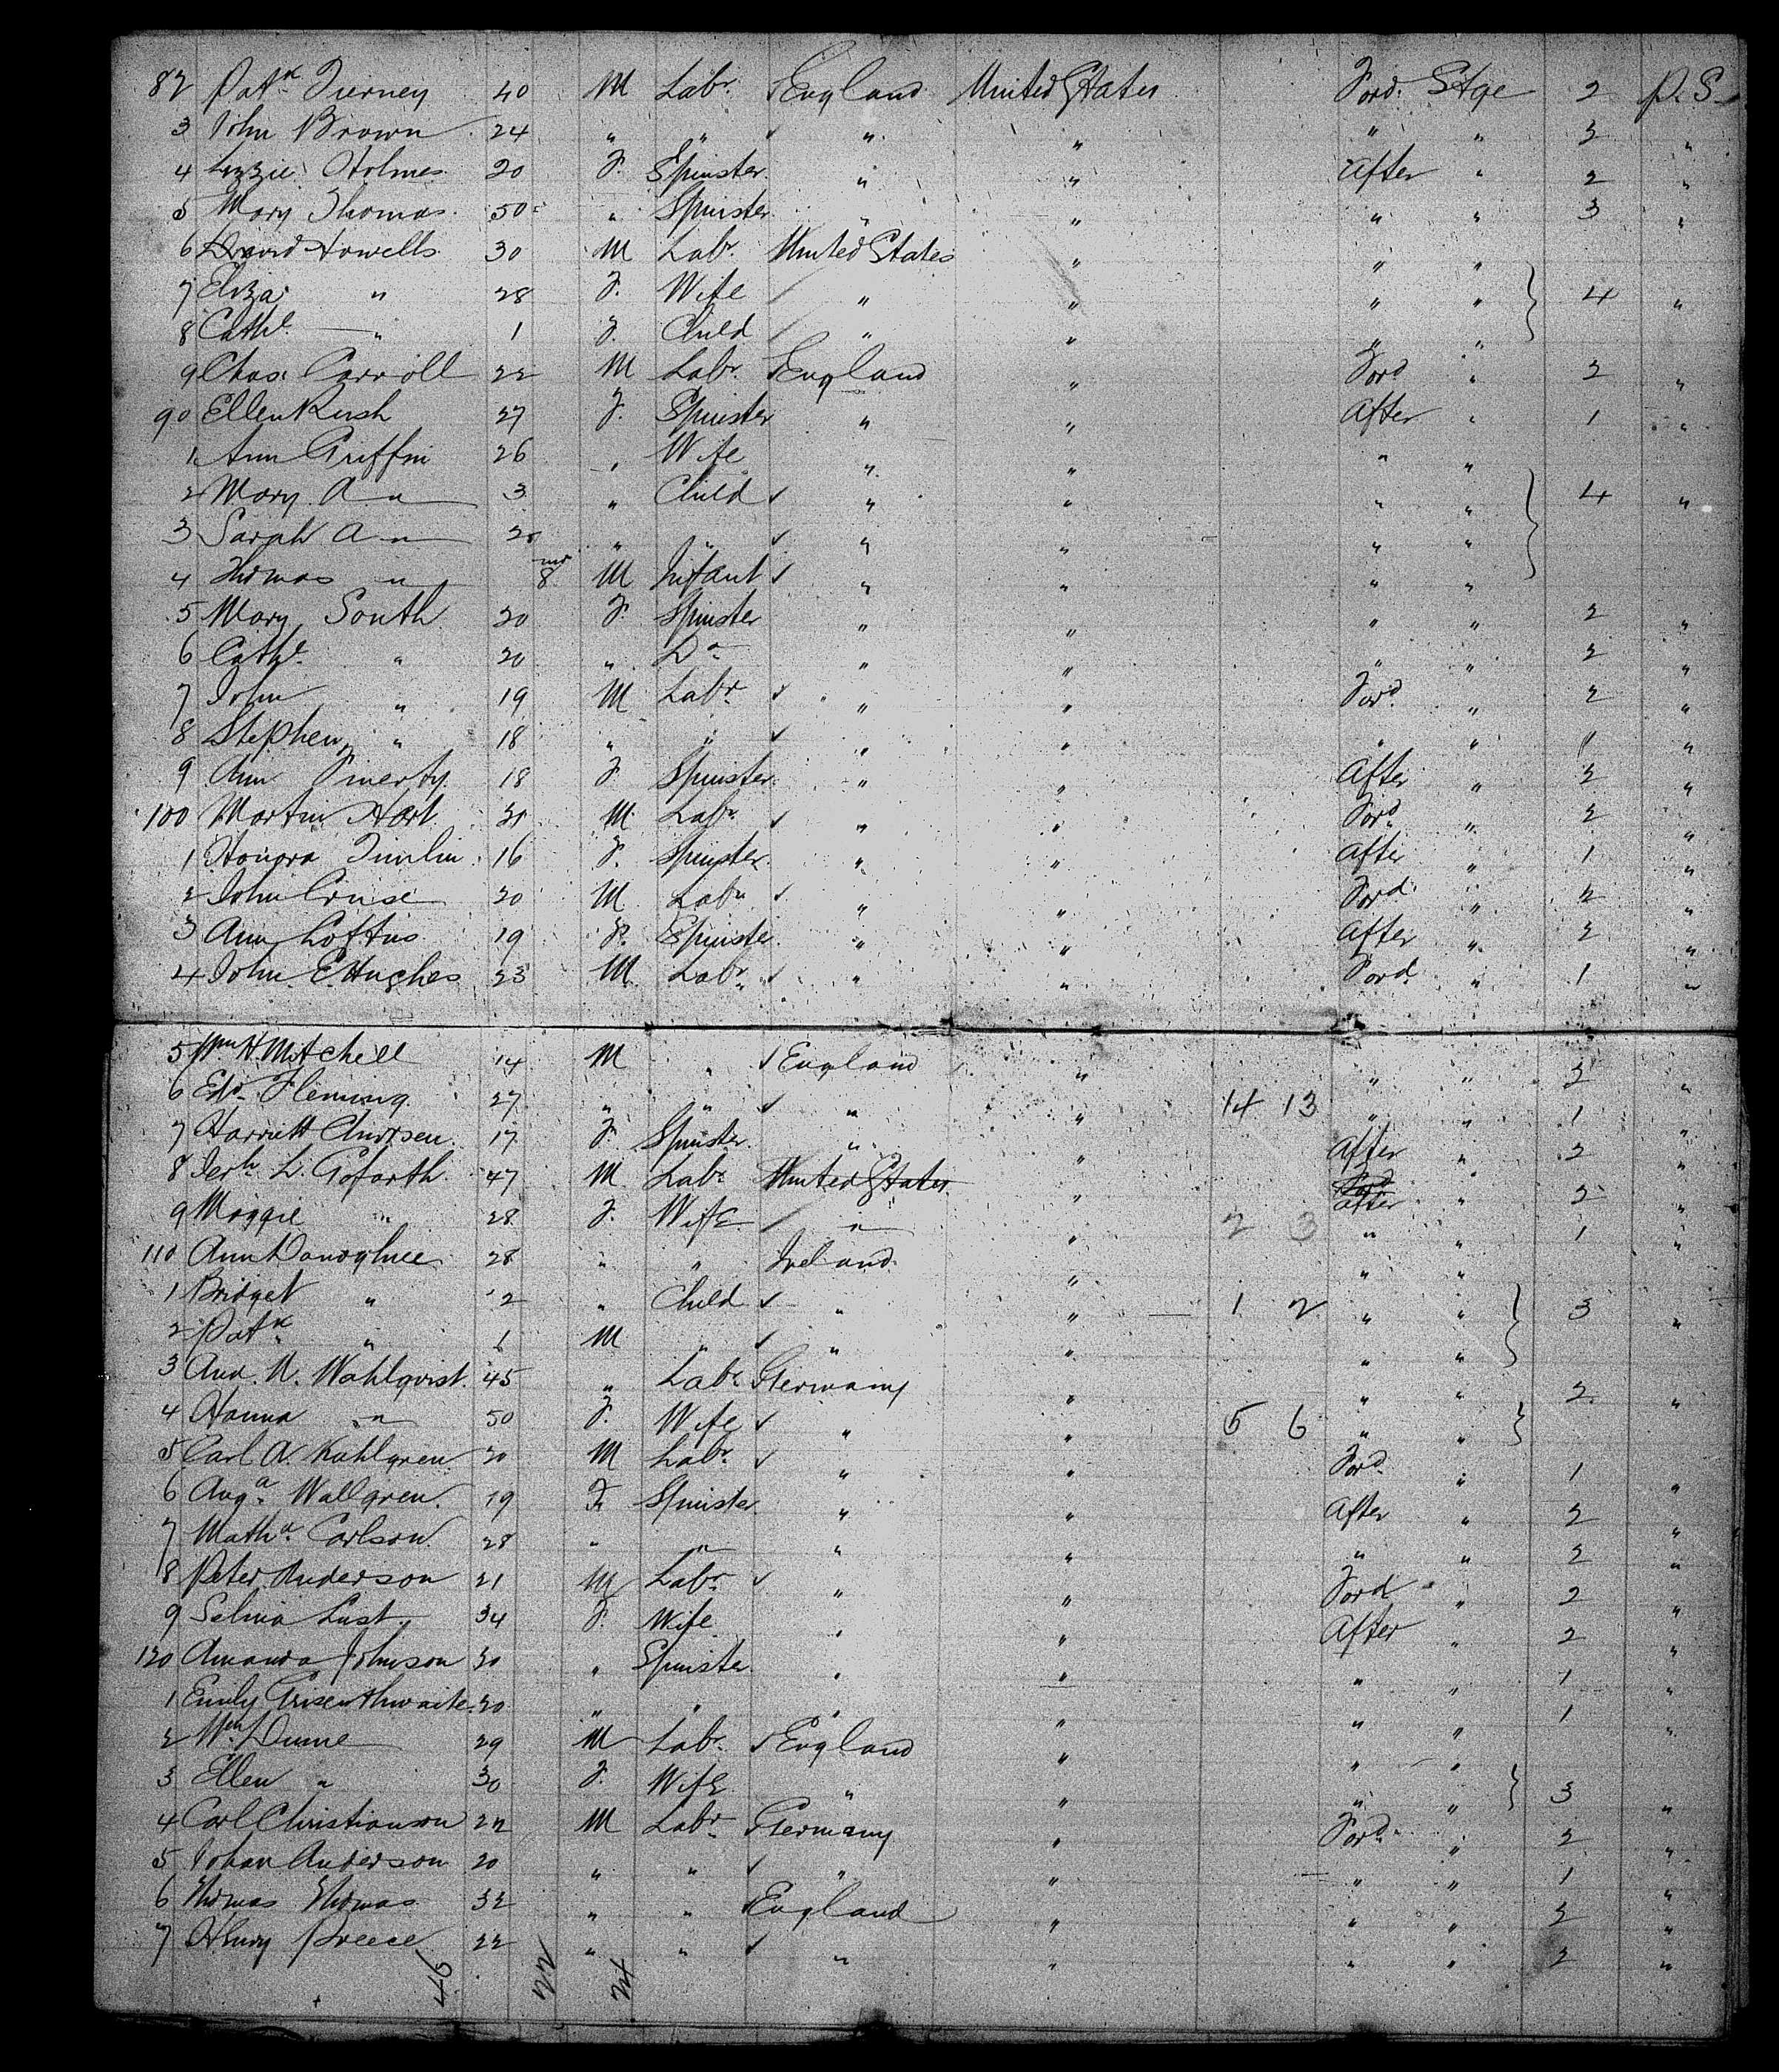 82 Patk Tierney 40 M Labr England United States Ford Stge 2 P.S.
3 John Brown 24 " " " " " " 2 "
4 Lizzie Holmes 20 F. Spinster " " After " 2 "
5 Mary Thomas 50 " Spinster " " " " 3 "
6 David Howells 30 M Labr United States " " "
7 Eliza " 28 F. Wife " " " " 4 "
8 Cathe " 1 F. Child " " " "
9 Chas. Carroll 22 M Labr England " Ford " 2 "
90 Ellen Rush 27 F. Spinster " " After " 1 "
1 Ann Griffin 26 " Wife " " " "
2 Mary A " 3 " Child " " " " 4 "
3 Sarah A " " " " " " "
4 Thomas " 8 mos M Infant " " " "
5 Mary South 20 F. Spinster " " " " 2 "
6 Cathe " 20 " Do " " " " 2 "
7 John " 19 M Labr " " Ford " 2 "
8 Stephen " 18 " " " " " " " "
9 Ann Finerty 18 F Spinster " " After " 2 "
100 Martin Hart M Labr " " Ford " 2 "
1 Honora 16 F. Spinster " " After " 1 "
2 John Cruise 20 M Labr " " Ford " 2 "
3 Ann Loftus 19 F. Spinster " " After " 2 "
4 John E. Hughes 23 M Labr " " Ford " 1 "
5 Wm H. Mitchell 14 M " England " " " 2 "
6 Edd Fleming 27 " " " " 14 13 " " 1 "
7 Harriett 17 F. Spinster " " After " 2 "
8 Jerh L. Goforth 47 M Labr United States " After " 2 "
9 Maggie " 28 F. Wife " " 2 3 " " 1 "
110 Ann Donoghue 28 " " Ireland " " "
1 Bridget " 2 " Child " " 1 2 " " 3 "
2 Patk " 1 M " " " " "
3 And. N. Wahlqvist 45 " Labr Germany " " " 2 "
4 Hanna " 50 F. Wife " " 5 6 " "
5 Carl A. Kahlgren 20 M Labr " " Ford " 1 "
6 Auga Wallgren 19 F. Spinster " " After " 2 "
7 Matha Carlson 28 " " " " " " 2 "
8 Peter Anderson 21 M Labr " " Ford " 2 "
9 Selma Lust 34 F. Wife " " After " 2 "
120 Amanda Johnson " Spinster " " " " 1 "
1 Emily Grisenthwaite 20 " " " " " " 1 "
2 Wm Dunne 29 M Labr England " " "
3 Ellen " 30 F. Wife " " " " 3 "
4 Carl Christianson 22 M Labr Germany " Ford " 2 "
5 Johan Anderson 20 " " " " " " 1 "
6 Thomas Thomas 32 " " England " " " 2 "
7 Henry Preece 22 " " " " " " 2 "
46 22 24